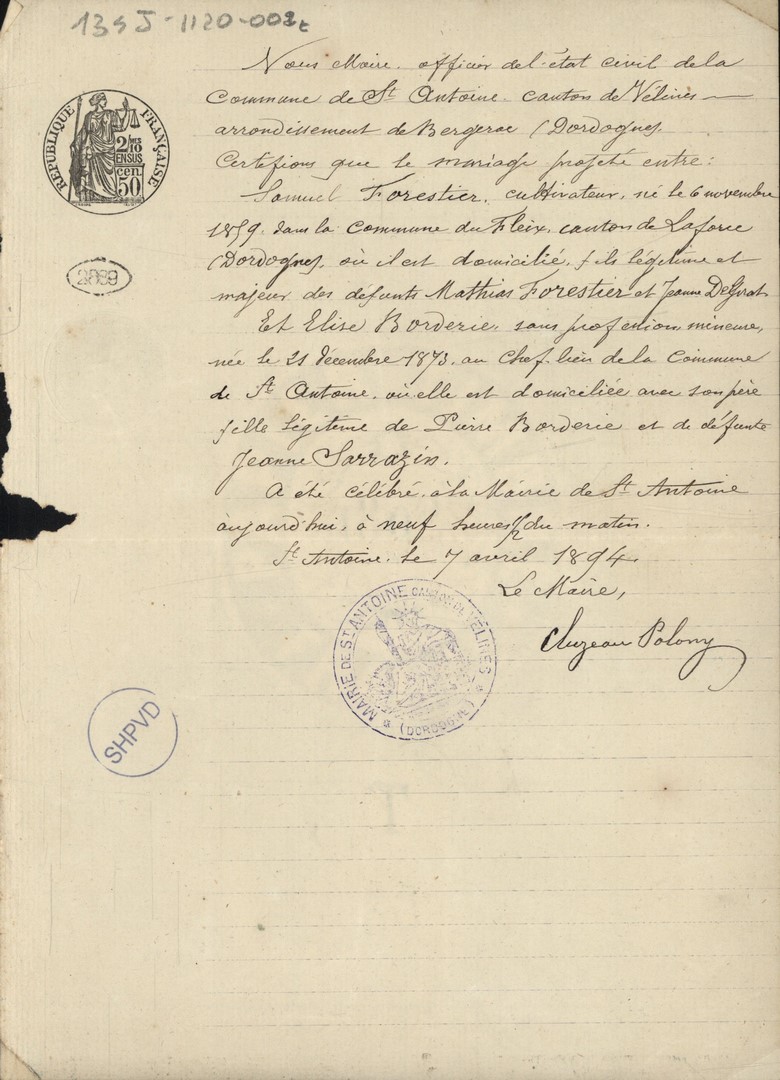 134J-1120-002
RÉPUBLIQUE FRANÇAISE
2/10
EN SUS
cen.
50
2889
Nous Maire, officier de l'état civil de la
Commune de St Antoine, canton de Vélines
arrondissement de Bergerac (Dordogne).
Certifions que le mariage projeté entre:
Samuel Forestier, cultivateur, né le 6 novembre
1859, dans la Commune du Fleix, canton de Laforce
(Dordogne), où il est domicilié, fils légitime et
majeur des défunts Mathias Forestier et Jeanne
Et Elise Borderie, sans profession, mineure,
née le 21 décembre 1873, au Chef-lieu de la Commune
de St Antoine, où elle est domiciliée avec son père
fille légitime de Pierre Borderie et de défunte
Jeanne Sarrazin.
A été célébré, à la Mairie de St Antoine
aujourd'hui, à neuf heures 1/2 du matin.
St Antoine, le 7 avril 1894.
Le Maire,
Cluzeau Polony
MAIRIE DE ST ANTOINE CANTON DE VÉLINES
(DORDOGNE)
SHPVD